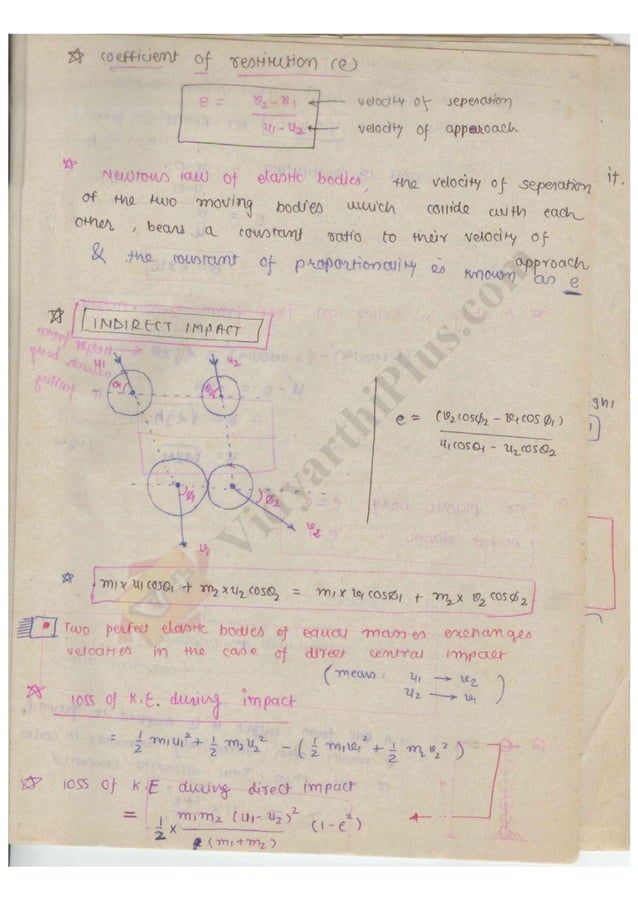 ☆ coefficient of restitution (e)
e = (v2 - v1) / (u1 - u2)
← velocity of seperation
← velocity of approach
☆ Newtons law of elastic bodies, the velocity of seperation
of the two moving bodies which collide with each
other, bears a constant ratio to their velocity of
approach
& the constant of proportionality is known as e
it.
☆ INDIRECT IMPACT
u1 u2
θ1 θ2
e = (v2 cosø2 - v1 cosø1) / (u1 cosθ1 - u2 cosθ2)
ø1 ø2
v1 v2
☆ m1 x u1 cosθ1 + m2 x u2 cosθ2 = m1 x v1 cosø1 + m2 x v2 cosø2
Two perfect elastic bodies of equal masses exchanges
velocities in the case of direct central impact
(means: u1 → v2
u2 → v1)
☆ loss of K.E. during impact
= 1/2 m1u1² + 1/2 m2u2² - (1/2 m1v1² + 1/2 m2v2²)
☆ loss of K.E during direct impact
= 1/2 x m1m2 (u1 - u2)² / (m1 + m2) (1 - e²)
VidyarthiPlus.com